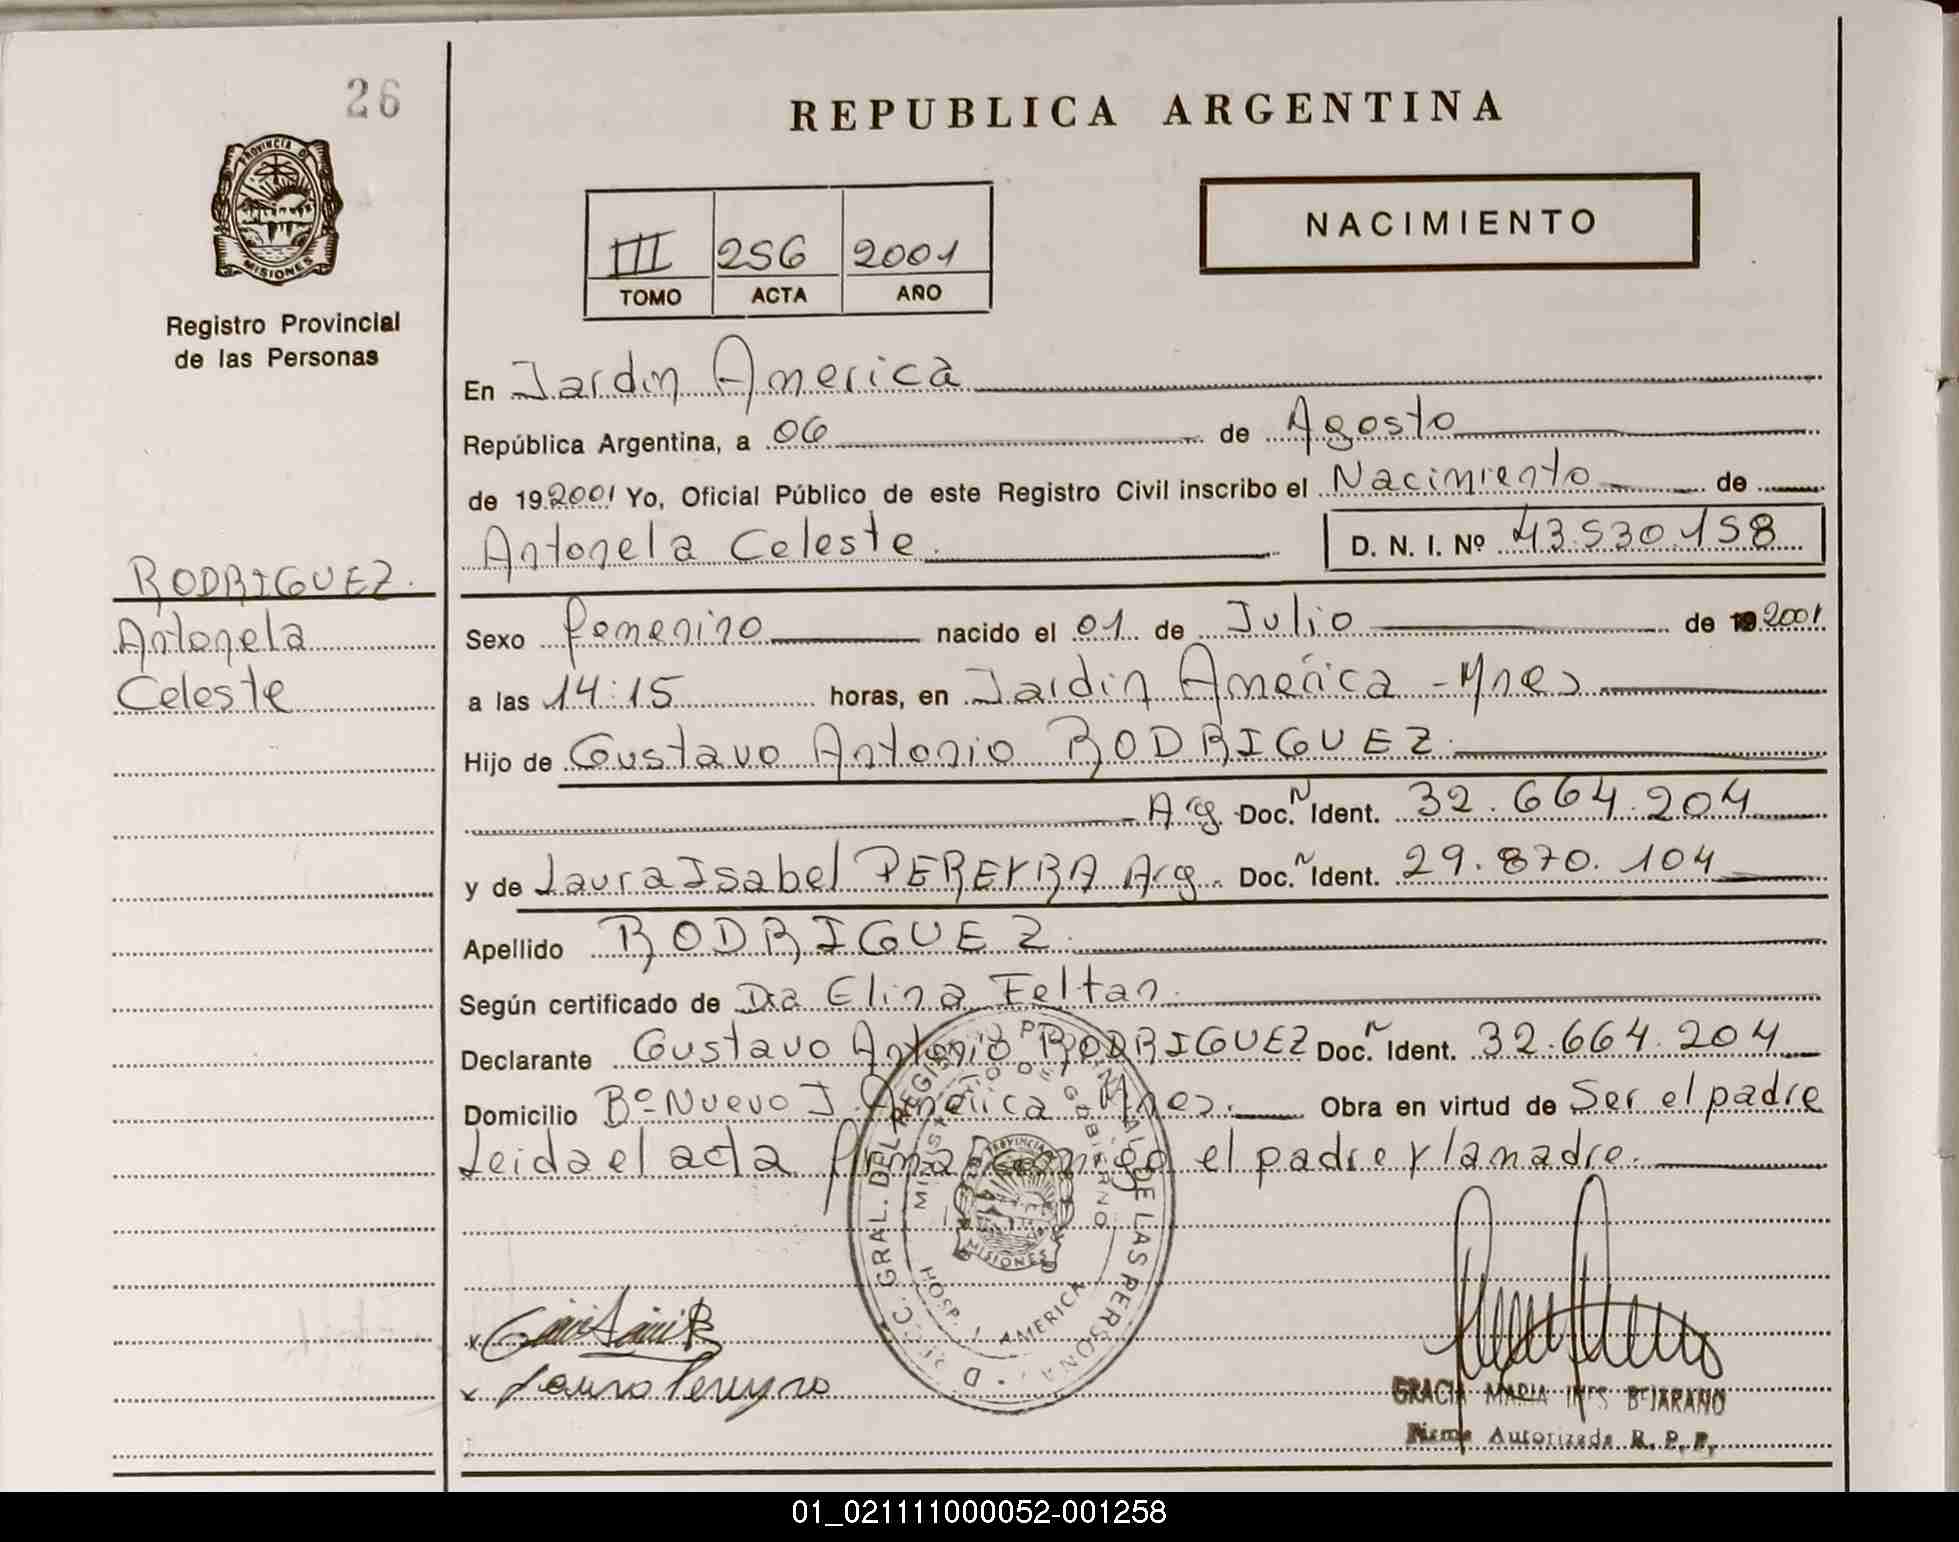 26
REPUBLICA ARGENTINA
PROVINCIA DE
MISIONES
Registro Provincial
de las Personas
III 256 2001
TOMO ACTA AÑO
NACIMIENTO
En Jardin America
República Argentina, a 06 de Agosto
de 19 2001 Yo, Oficial Público de este Registro Civil inscribo el Nacimiento de
Antonela Celeste. D. N. I. Nº 43.530.158
RODRIGUEZ.
Antonela
Celeste
Sexo femenino nacido el 01 de Julio de 19 2001
a las 14:15 horas, en Jardin America - Mnes
Hijo de Gustavo Antonio RODRIGUEZ.
Arg. Doc. N Ident. 32.664.204
y de Laura Isabel PEREYRA Arg. Doc. N Ident. 29.870.104
Apellido RODRIGUEZ.
Según certificado de Dra Elina Feltan.
Declarante Gustavo Antonio RODRIGUEZ Doc. N Ident. 32.664.204
Domicilio Bº Nuevo J. America Mnes. Obra en virtud de Ser el padre
Leida el acta firman conmigo el padre y la madre.
GRAL. DEL REGISTRO PROVINCIAL DE LAS PERSONAS
MINISTERIO DE GOBIERNO
PROVINCIA
MISIONES
HOSP. J. AMERICA
x Laura Pereyra
GRACIA MARIA INES BEJARANO
Firma Autorizada R. P. P.
01_021111000052-001258